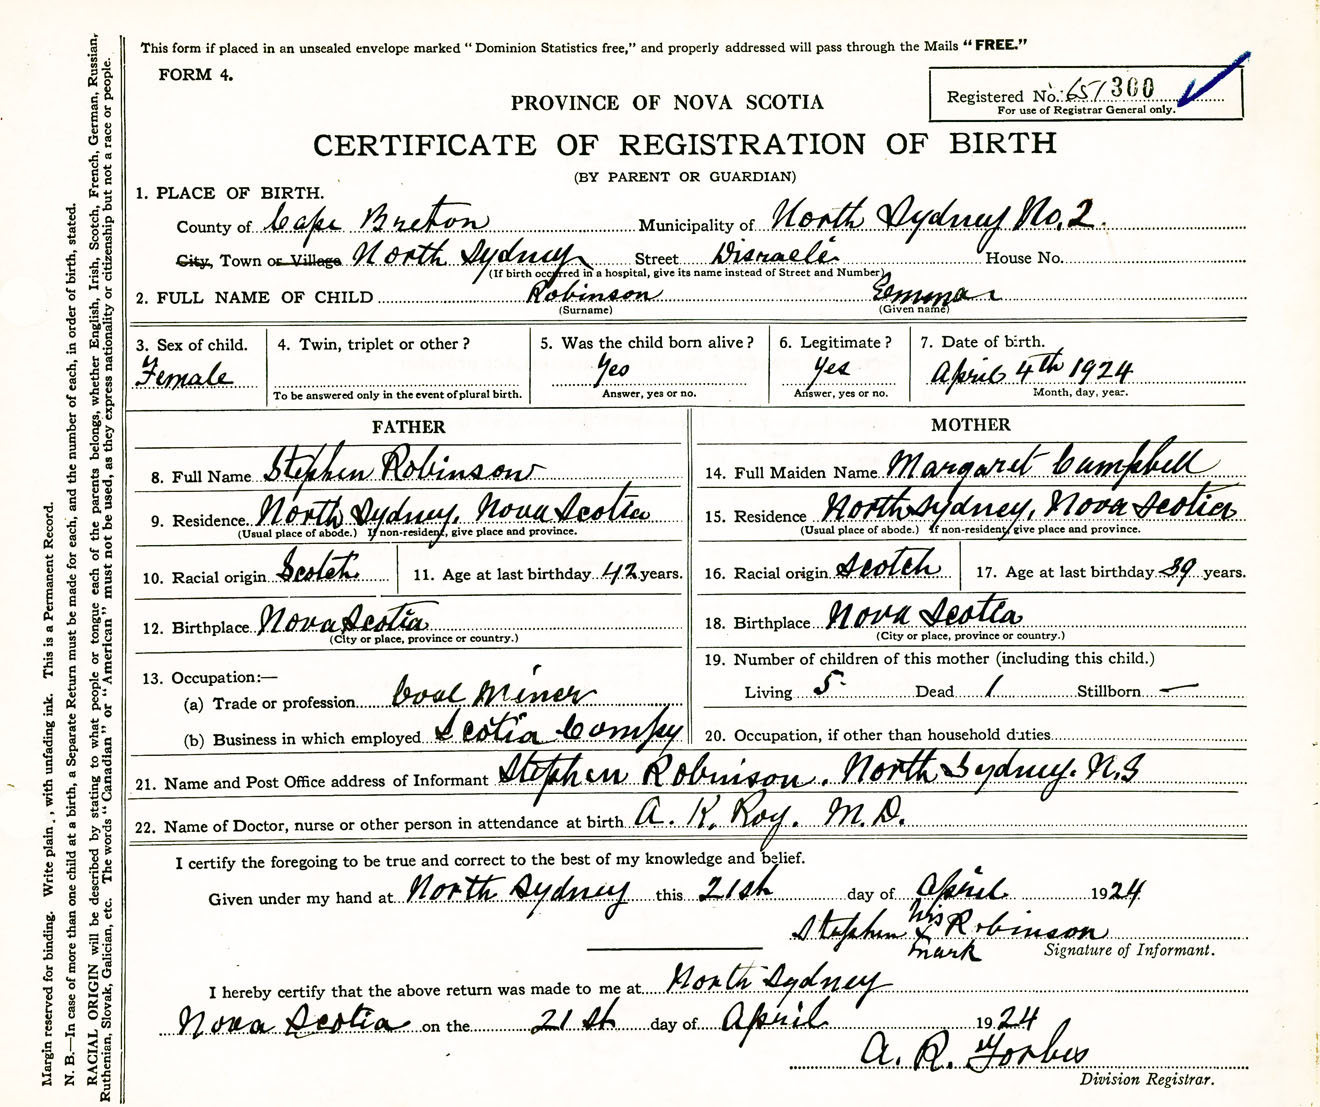 This form if placed in an unsealed envelope marked "Dominion Statistics free," and properly addressed will pass through the Mails "FREE."
FORM 4.
Registered No. 651300
For use of Registrar General only.
PROVINCE OF NOVA SCOTIA
CERTIFICATE OF REGISTRATION OF BIRTH
(BY PARENT OR GUARDIAN)
1. PLACE OF BIRTH.
County of Cape Breton Municipality of North Sydney No. 2.
City, Town or Village North Sydney Street Disraeli House No.
(If birth occurred in a hospital, give its name instead of Street and Number)
2. FULL NAME OF CHILD Robinson Emma
(Surname) (Given name)
3. Sex of child. 4. Twin, triplet or other? 5. Was the child born alive? 6. Legitimate? 7. Date of birth.
Female Yes Yes April 4th 1924
To be answered only in the event of plural birth. Answer, yes or no. Answer, yes or no. Month, day, year.
FATHER MOTHER
8. Full Name Stephen Robinson 14. Full Maiden Name Margaret Campbell
9. Residence North Sydney, Nova Scotia 15. Residence North Sydney, Nova Scotia
(Usual place of abode.) If non-resident, give place and province. (Usual place of abode.) If non-resident, give place and province.
10. Racial origin Scotch 11. Age at last birthday 42 years. 16. Racial origin Scotch 17. Age at last birthday 39 years.
12. Birthplace Nova Scotia 18. Birthplace Nova Scotia
(City or place, province or country.) (City or place, province or country.)
13. Occupation:— 19. Number of children of this mother (including this child.)
(a) Trade or profession Coal Miner Living 5 Dead 1 Stillborn —
(b) Business in which employed Scotia Compy 20. Occupation, if other than household duties
21. Name and Post Office address of Informant Stephen Robinson. North Sydney. N.S
22. Name of Doctor, nurse or other person in attendance at birth A. K. Roy. M.D.
I certify the foregoing to be true and correct to the best of my knowledge and belief.
Given under my hand at North Sydney this 21st day of April 1924
Stephen his X mark Robinson
Signature of Informant.
I hereby certify that the above return was made to me at North Sydney
Nova Scotia on the 21st day of April 1924
A. R. Forbes
Division Registrar.
Margin reserved for binding. Write plain , with unfading ink. This is a Permanent Record.
N. B.—In case of more than one child at a birth, a Separate Return must be made for each, and the number of each, in order of birth, stated.
RACIAL ORIGIN will be described by stating to what people or tongue each of the parents belongs, whether English, Irish, Scotch, French, German, Russian,
Ruthenian, Slovak, Galician, etc. The words "Canadian" or "American" must not be used, as they express nationality or citizenship but not a race or people.